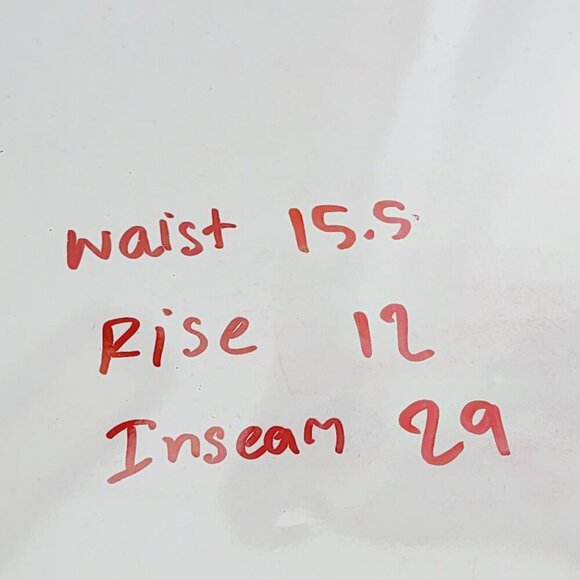 waist 15.5
Rise 12
Inseam 29